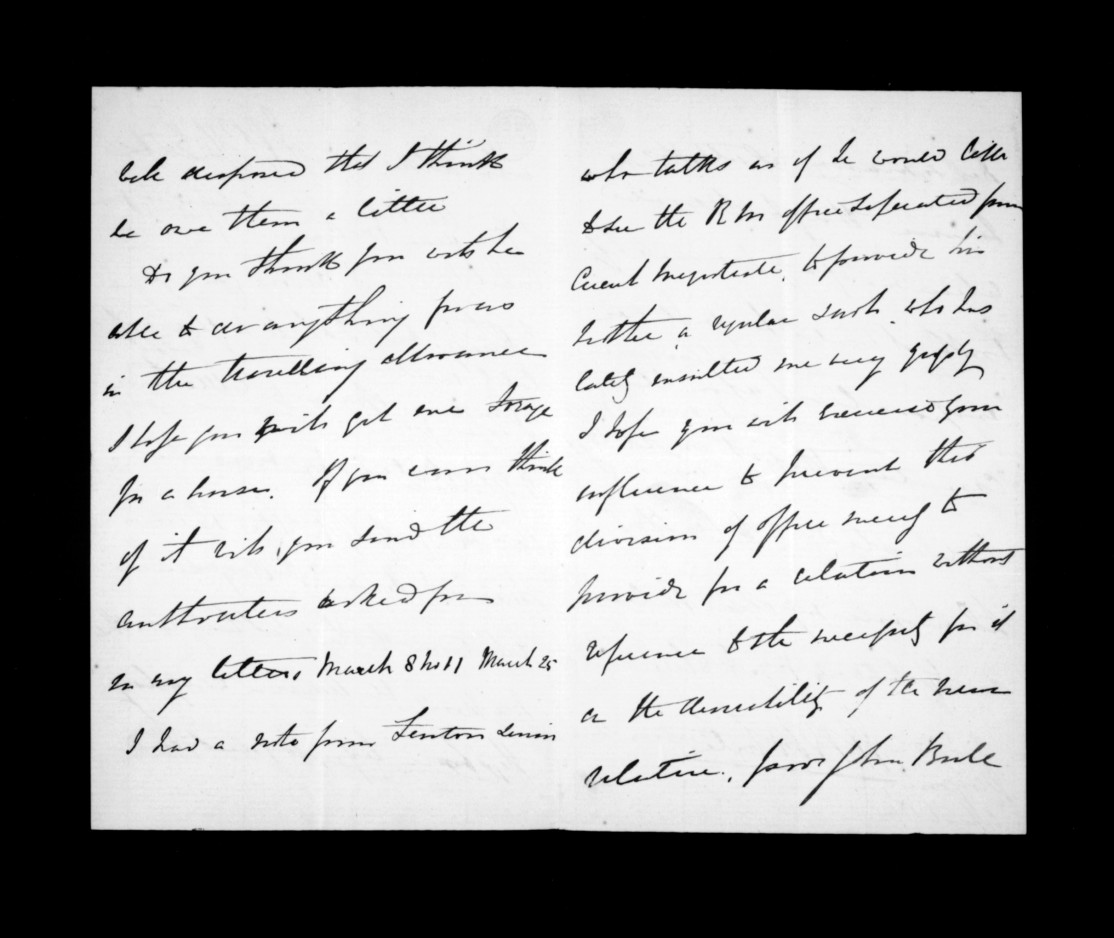 well disposed that I think
we owe them a little
Do you think you will be
able to do anything for us
in the travelling allowance
I hope you will get me forage
for a horse. If you can think
of it will you send the
authorities asked for
in my letters March 8 No 11 March 25
I had a note from Fenton Senior
who talks as if he would like
to see the RM office separated from
Circuit Magistrate, to provide his
brother a regular , who has
lately insulted me very grossly
I hope you will exercise your
influence to prevent this
division of office merely to
provide for a relation without
reference to the necessity for it
or the desirability of the new
relative, poor John Bull